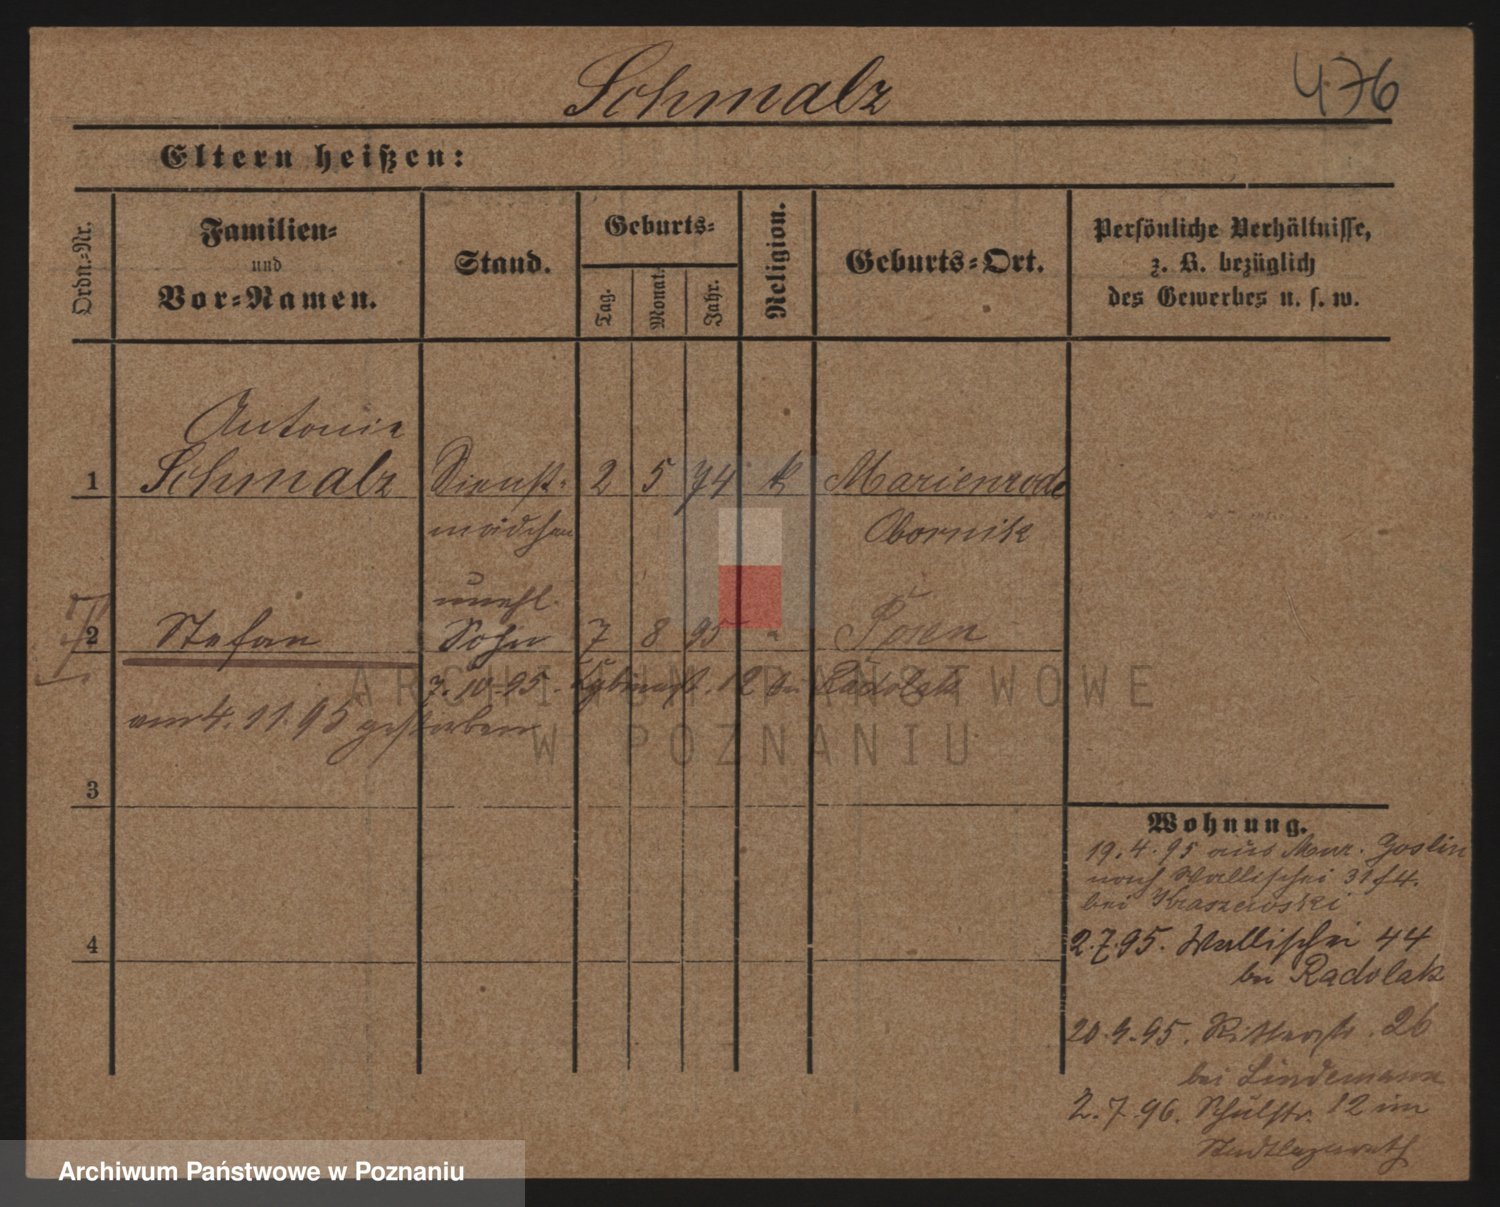 Schmalz
476
Eltern heißen:
Ordn.-Nr.
Familien-
und
Vor-Namen.
Stand.
Geburts-
Tag.
Monat.
Jahr.
Religion.
Geburts-Ort.
Persönliche Verhältnisse,
z. B. bezüglich
des Gewerbes u. s. w.
Antonie
1 Schmalz Dienst- 2 5 74 k Marienrode
mädchen Obornik
unehl.
2 Stefan Sohn 7 8 95 " Posen
7.10.95. 12 bei Radolak
am 4. 11. 95 gestorben
3
4
Wohnung.
19. 4. 95 aus Mur. Goslin
nach Wallischei
bei Kraszewski
2.7.95. Wallischei 44
bei Radolak
20.9.95. Ritterstr. 26
bei Lindemann
2.7.96. Schulstr. 12 im
Stadtlazareth
ARCHIWUM PAŃSTWOWE
W POZNANIU
Archiwum Państwowe w Poznaniu